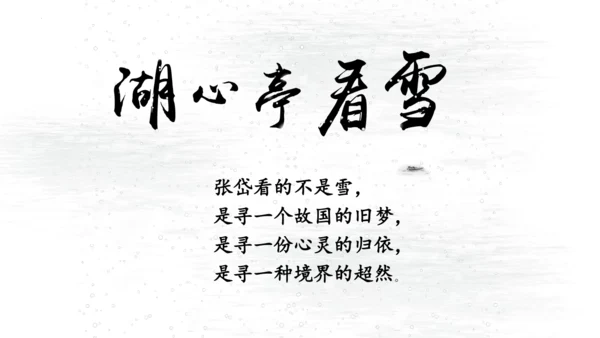 湖心亭看雪
张岱看的不是雪，
是寻一个故国的旧梦，
是寻一份心灵的归依，
是寻一种境界的超然。